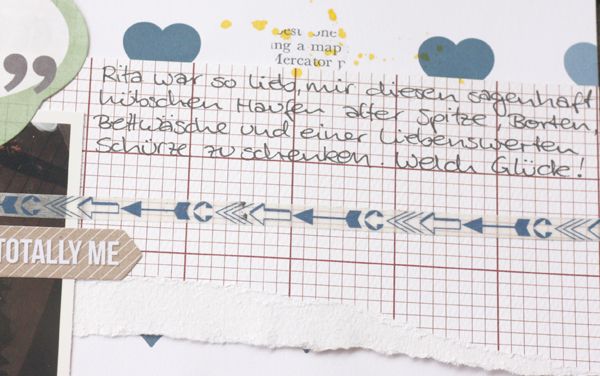 best one
ing a map
Mercator p
Rita war so lieb, mir diesen sagenhaft
hübschen Haufen alter Spitze, Borten,
Bettwäsche und einer liebenswerten
Schürze zu schenken. Welch Glück!
TOTALLY ME